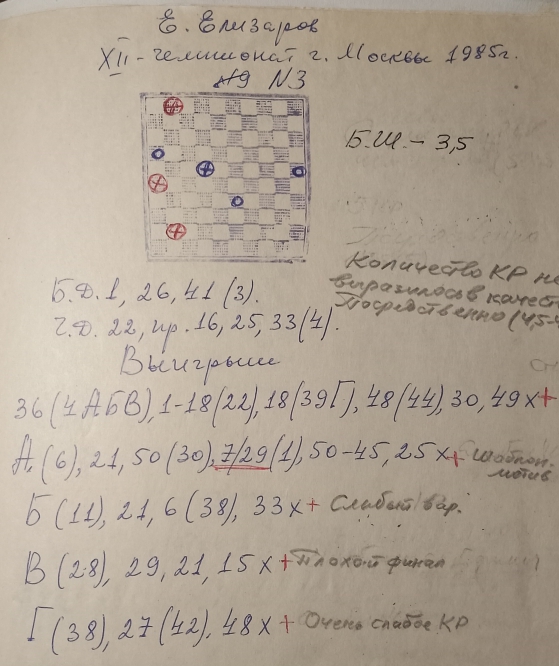 Е. Елизаров
XII - чемпионат г. Москвы 1985г.
№9 N3
Б.Ш. - 3,5
Количество КР не
выразилось в качест
Посредственно (45-
Б.Д. 1, 26, 41 (3).
Ч.Д. 22, пр. 16, 25, 33 (4).
Выигрыш
36 (4АБВ), 1-18(22), 18(39Г), 48(44), 30, 49x+
А (6), 21, 50(30), 7/29(1), 50-45, 25x+ шаблон.
мотив
Б (11), 21, 6(38), 33x+ Слабый вар.
В (28), 29, 21, 15x+ Плохой финал
Г (38), 27(42), 48x+ Очень слабое КР